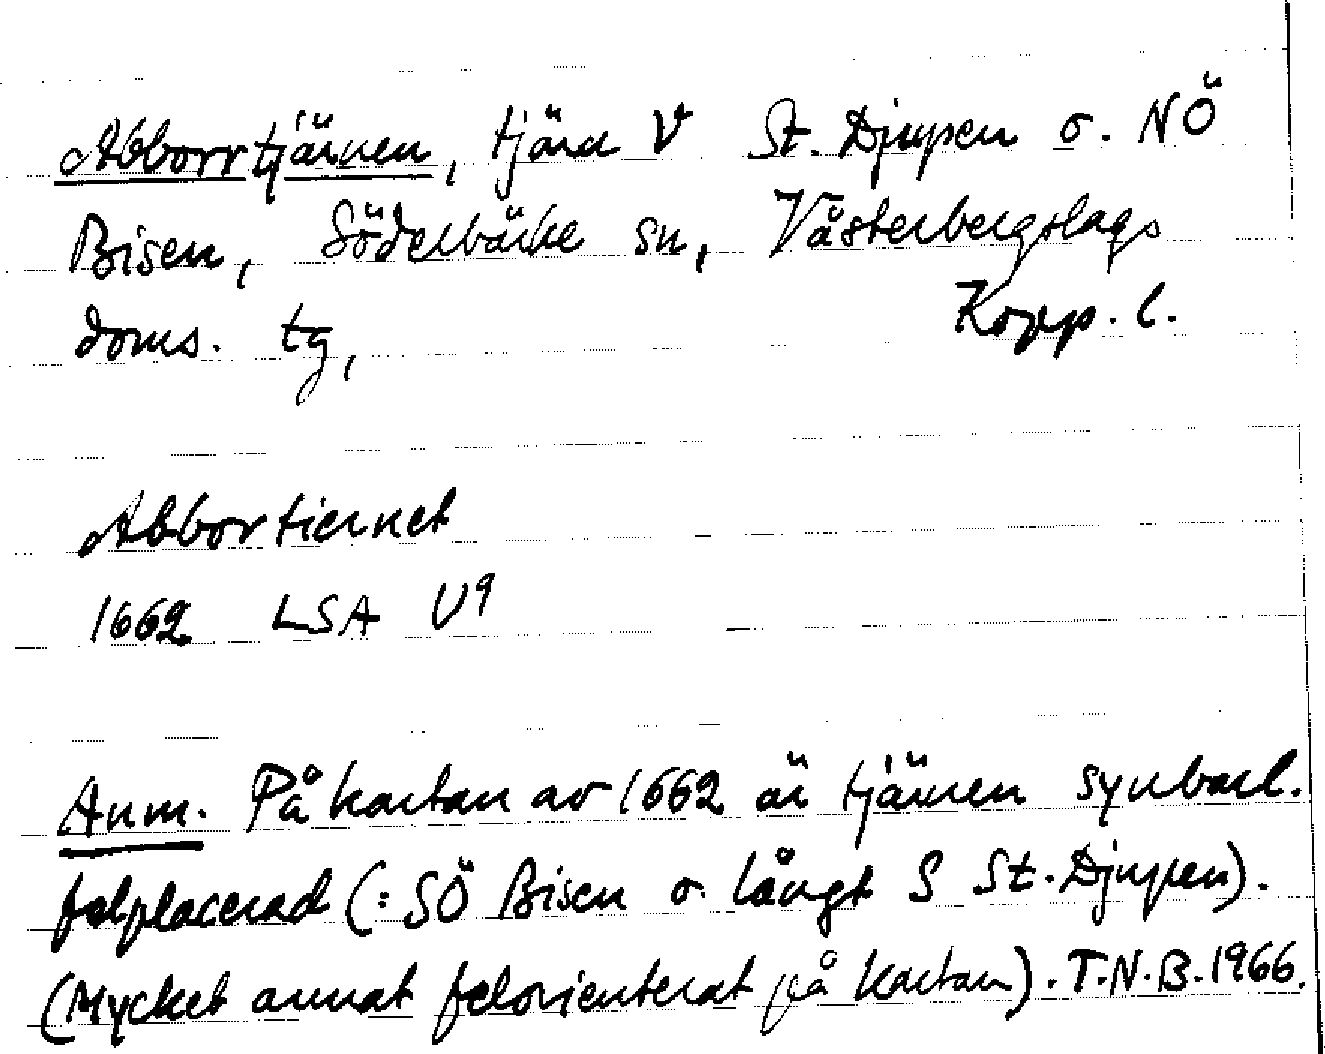 Abborrtjärnen, tjärn V St. Djupen o. NÖ
Bisen, Söderbärke sn, Västerbergslags
doms. tg, Kopp. l.
Abbortiernet
1662 LSA U9
Anm. På kartan av 1662 är tjärnen synbarl.
felplacerad (: SÖ Bisen o. långt S St. Djupen).
(Mycket annat felorienterat på kartan). T.N.B. 1966.